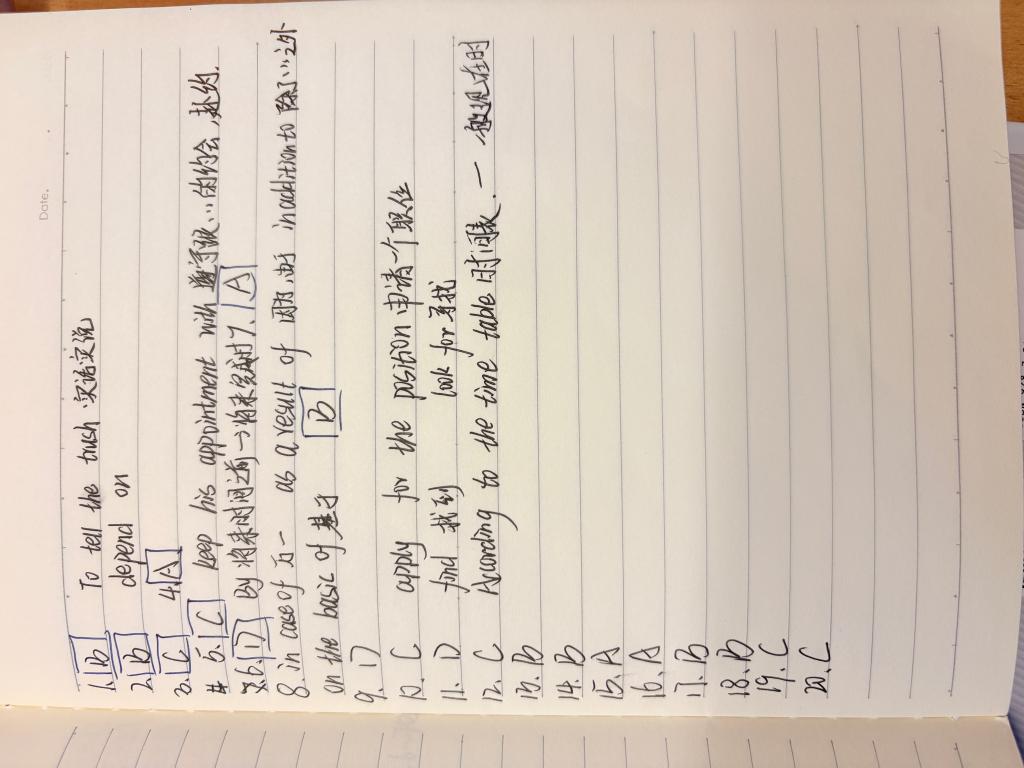 Date.
1. B To tell the truth 实话实说
2. B depend on
3. C 4. A
5. C keep his appointment with 遵守跟…的约会,赴约.
6. D By 将来时间前→将来完成时 7. A
8. in case of 万一 as a result of 因为,由于 in addition to 除了…之外
on the basic of 基于 B
9. D
10. C apply for the position 申请一个职位
11. D find 找到 look for 寻找
12. C According to the time table 时间表. 一般现在时
13. B
14. B
15. A
16. A
17. B
18. B
19. C
20. C